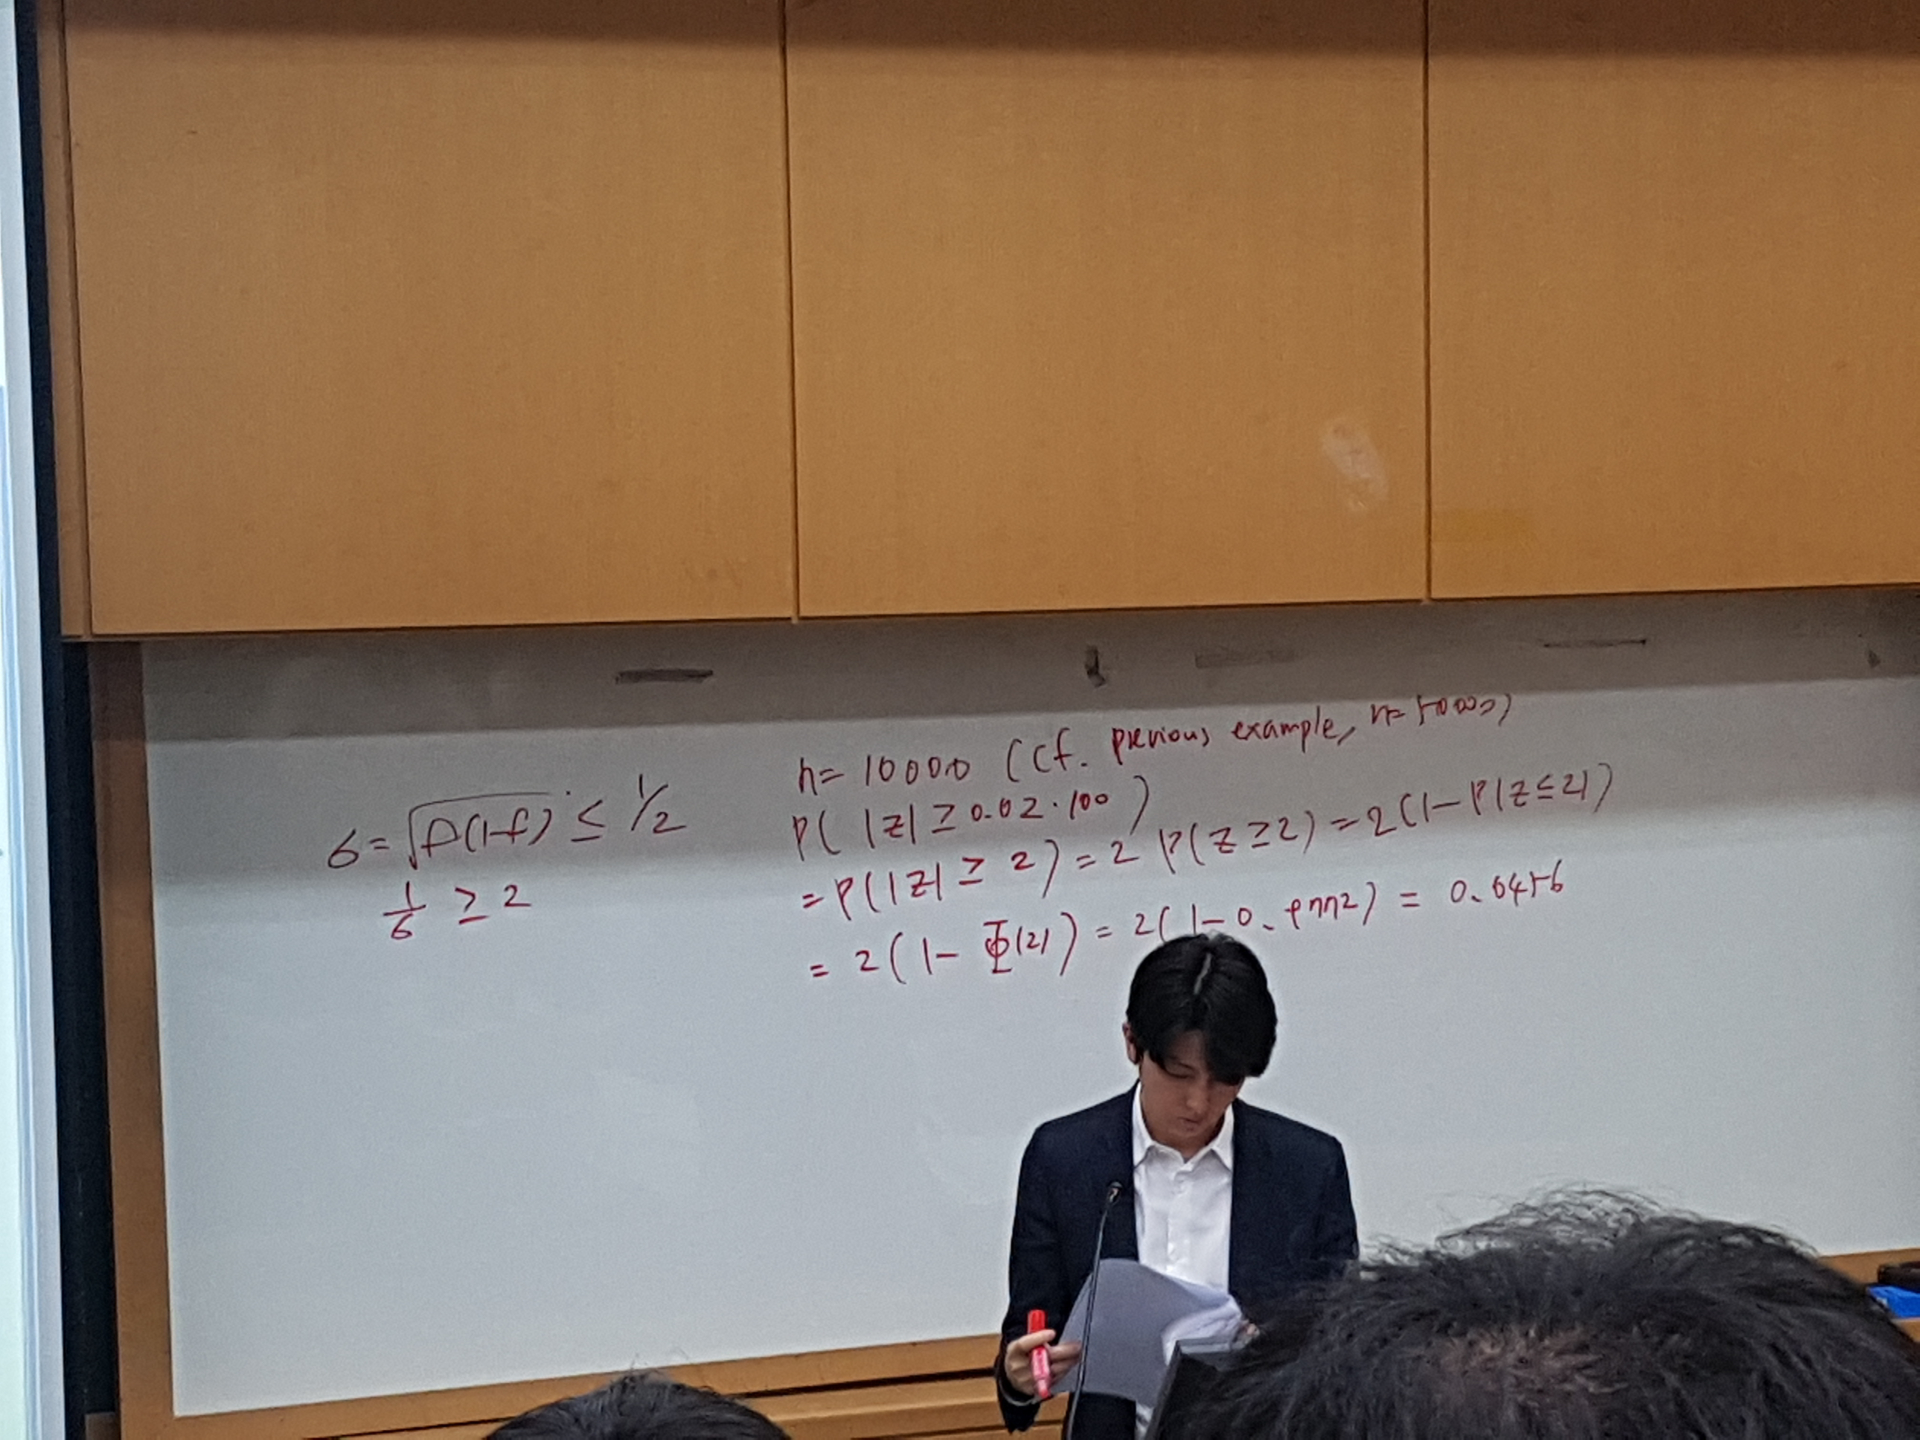 σ = √f(1-f) ≤ 1/2
1/σ ≥ 2
n = 10000 (cf. previous example, n = 50000)
P( |Z| ≥ 0.02·100 )
= P( |Z| ≥ 2 ) = 2 P( Z ≥ 2 ) = 2 ( 1 - P(Z ≤ 2) )
= 2 ( 1 - Φ(2) ) = 2 ( 1 - 0.9772 ) = 0.0456